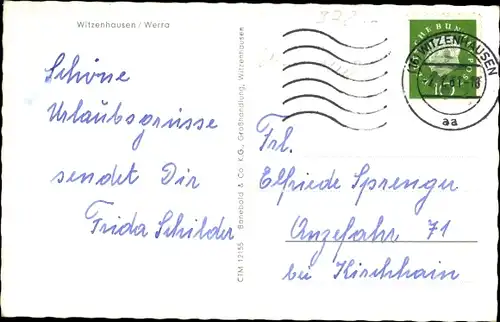 Witzenhausen / Werra
Schöne
Urlaubsgrüsse
sendet Dir
Frida Schilder
CTM 12155 Benebald & Co K.G., Großhandlung, Witzenhausen
(16) WITZENHAUSEN
aa
DEUTSCHE BUNDESPOST
10
Frl.
Elfriede Sprenger
Anzefahr 71
bei Kirchhain